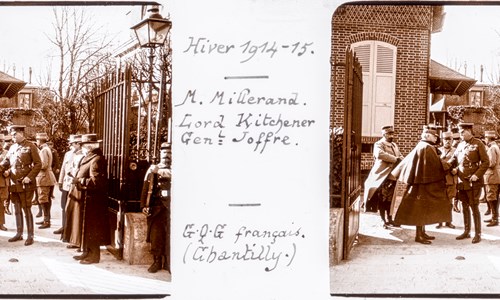 Hiver 1914-15.
M. Millerand.
Lord Kitchener
Genl Joffre.
G.Q.G français.
(Chantilly.)